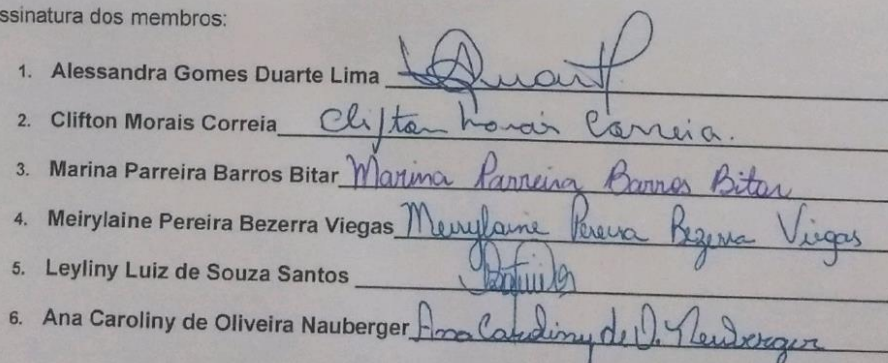 ssinatura dos membros:
1. Alessandra Gomes Duarte Lima
2. Clifton Morais Correia Clifton Morais Correia.
3. Marina Parreira Barros Bitar Marina Parreira Barros Bitar
4. Meirylaine Pereira Bezerra Viegas Meirylaine Pereira Bezerra Viegas
5. Leyliny Luiz de Souza Santos
6. Ana Caroliny de Oliveira Nauberger Ana Caroliny de O. Neuberger